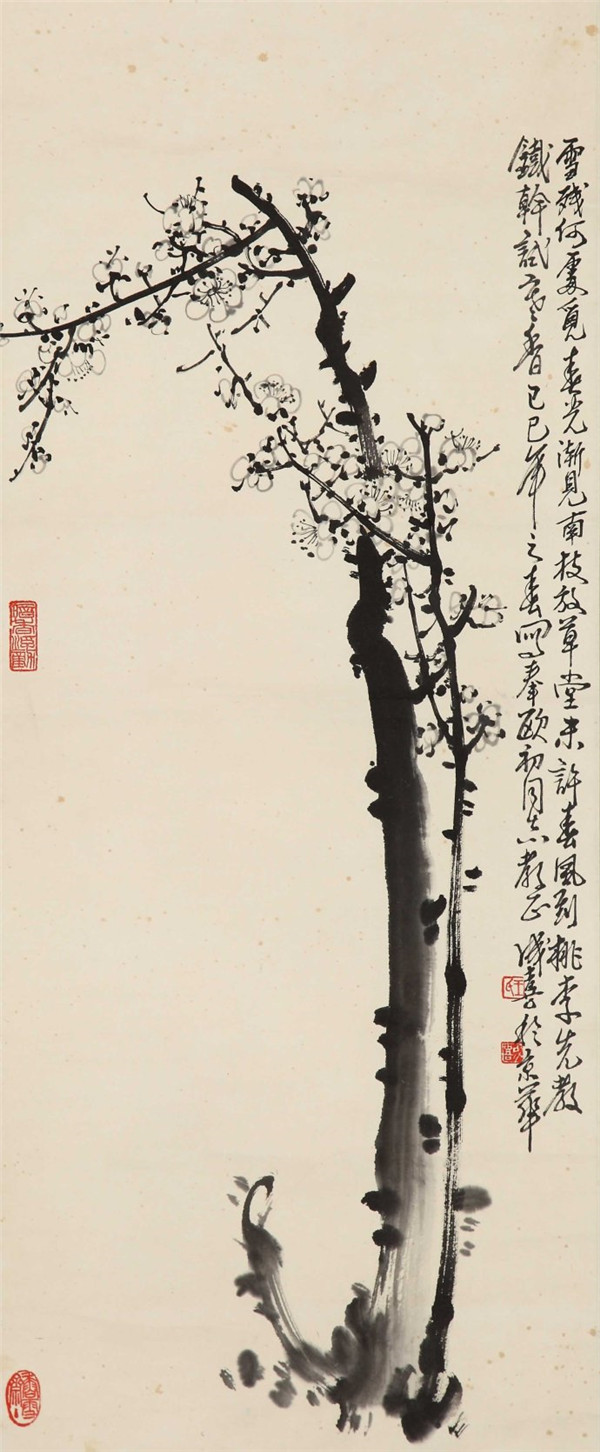 雪残何处覓春光渐見南枝放草堂未許春風到桃李先教
鐵幹試寒香己巳年之春寫奉欧初同志教正成喜於京華